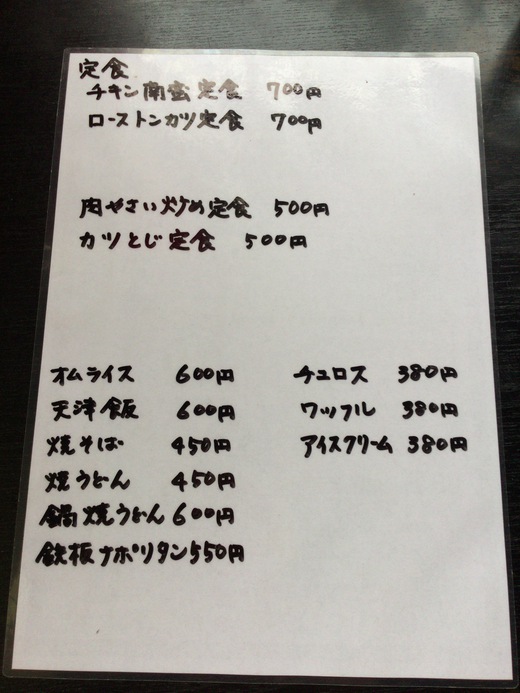 定食
チキン南蛮定食 700円
ローストンカツ定食 700円
肉やさい炒め定食 500円
カツとじ定食 500円
オムライス 600円
天津飯 600円
焼そば 450円
焼うどん 450円
鍋焼うどん 600円
鉄板ナポリタン 550円
チュロス 380円
ワッフル 380円
アイスクリーム 380円